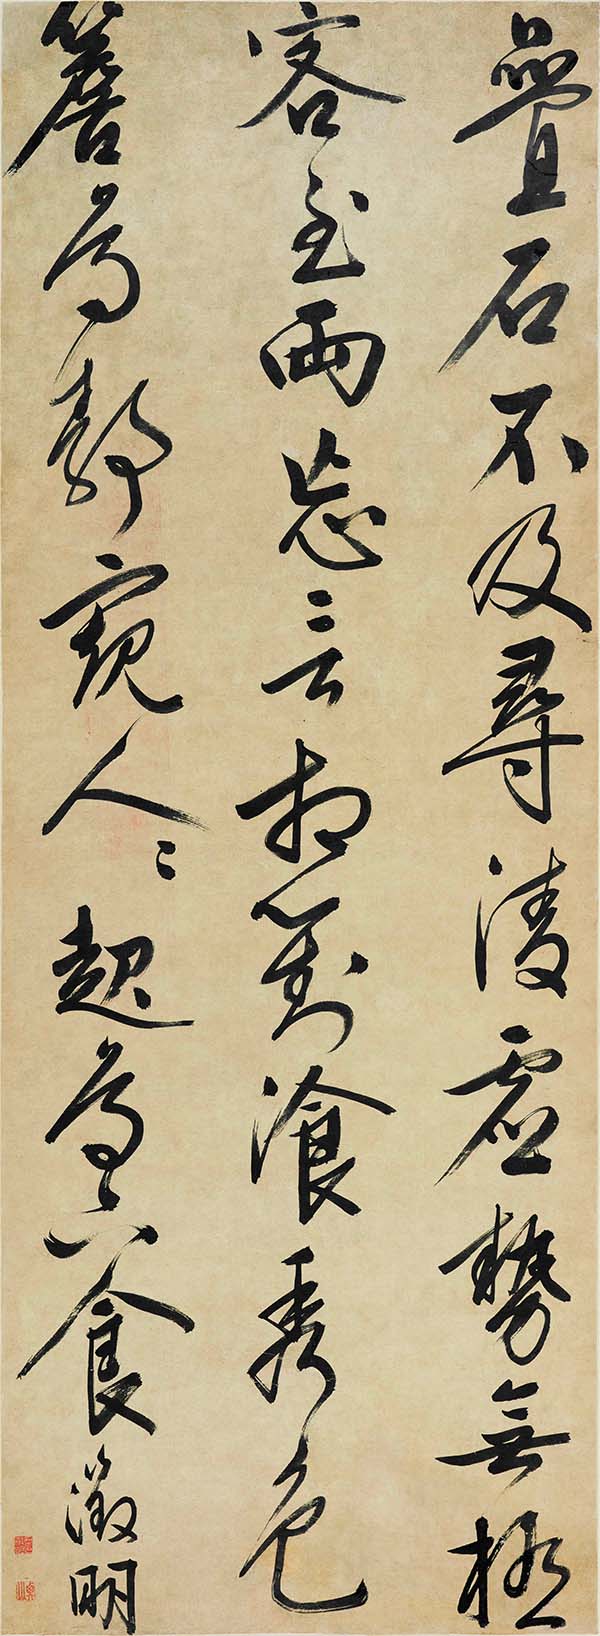 疊石不及尋淩虛勢無極
客至兩忘言相對湌秀色
簷鳥靜窺人〻起鳥下食徵明